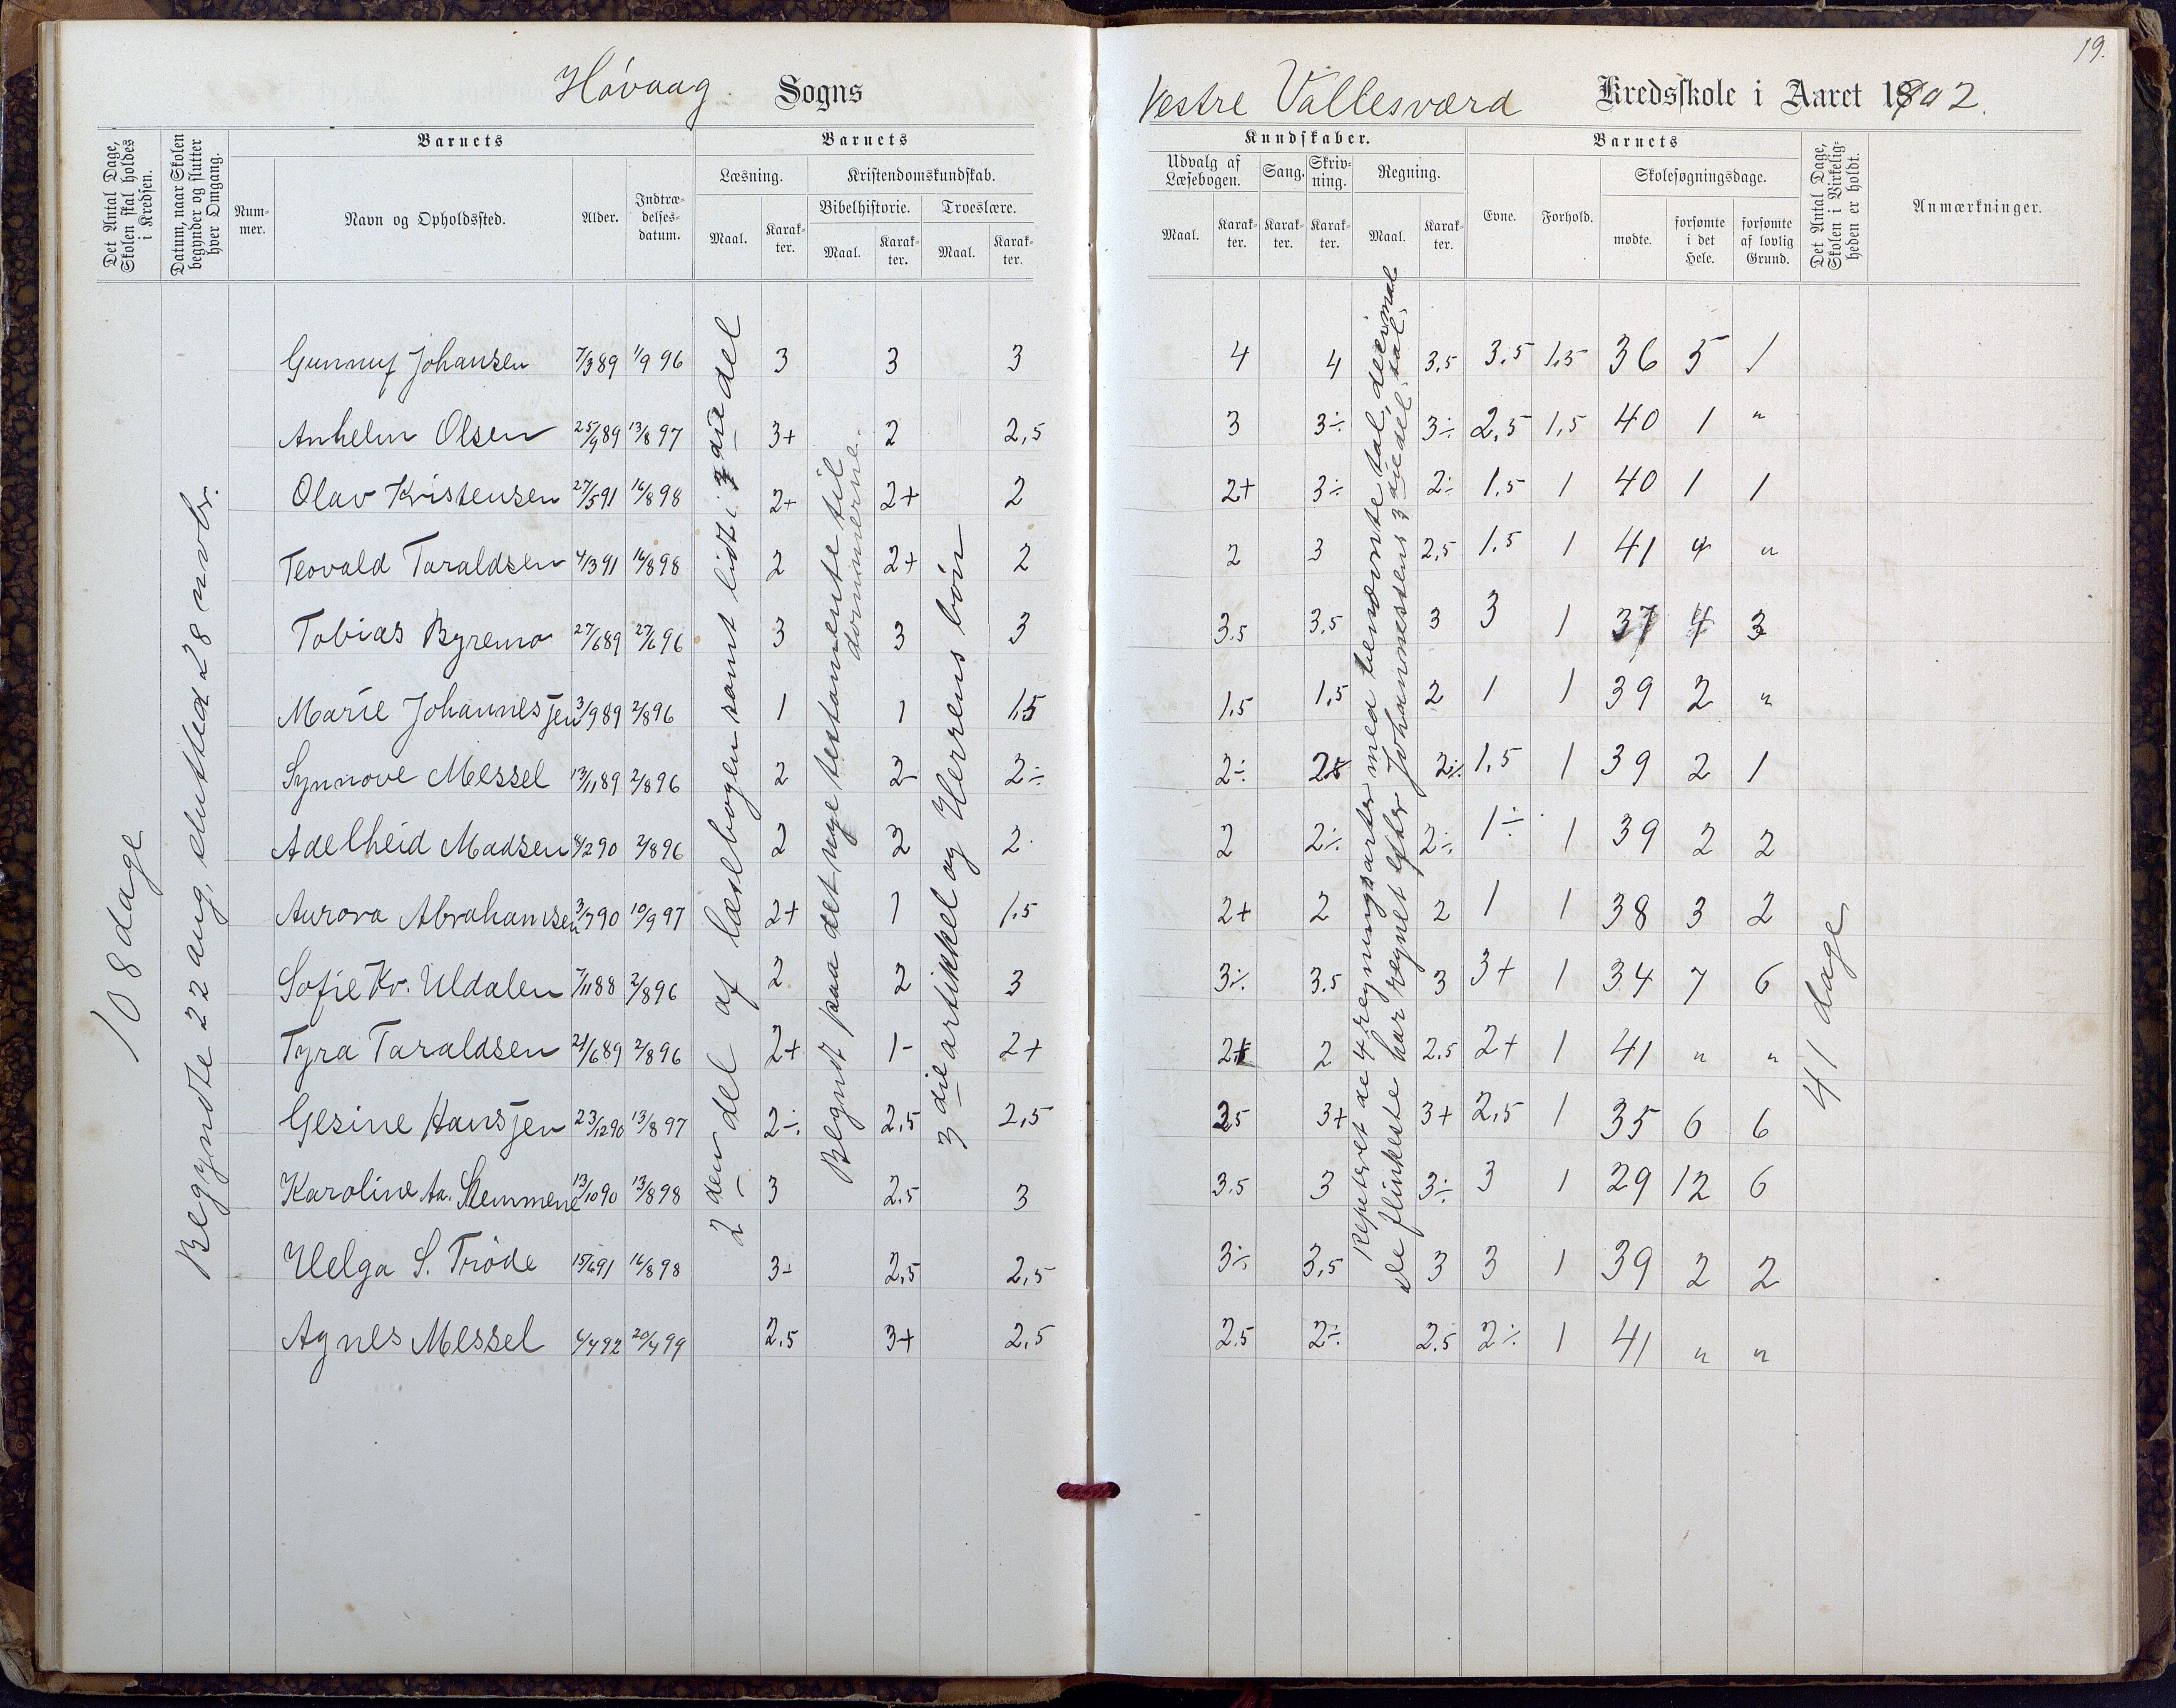 19.
Høvaag Sogns Vestre Vallesværd Kredsskole i Aaret 1902.
Det Antal Dage, Skolen skal holdes i Kredsen.
Datum, naar Skolen begynder og slutter hver Omgang.
Barnets
Nummer.
Navn og Opholdssted.
Alder.
Indtrædelsesdatum.
Barnets
Læsning.
Maal.
Karakter.
Kristendomskundskab.
Bibelhistorie.
Maal.
Karakter.
Troeslære.
Maal.
Karakter.
Kundskaber.
Udvalg af Læsebogen.
Maal.
Karakter.
Sang.
Karakter.
Skrivning.
Karakter.
Regning.
Maal.
Karakter.
Barnets
Evne.
Forhold.
Skolesøgningsdage.
mødte.
forsømte i det Hele.
forsømte af lovlig Grund.
Det Antal Dage, Skolen i Virkeligheden er holdt.
Anmærkninger.
108 dage
Begyndte 22 aug, sluttede 28 novbr.
2den del af læsebogen samt lidt i 3die del
Begyndt paa det nye testamente til dommerne.
3die artikkel og Herrens bön
Repeteret de 4 regningsarter med benævnte tal, decimal
de flinkeste har regnet efter Johannessens 3diedel. tal.
41 dage
Gunnuf Johansen 7/3 89 1/9 96 3 3 3 4 4 3,5 3,5 1,5 36 5 1
Anhelm Olsen 25/9 89 13/8 97 3+ 2 2,5 3 3÷ 3÷ 2,5 1,5 40 1 "
Olav Kristensen 27/5 91 16/8 98 2+ 2+ 2 2+ 3÷ 2÷ 1,5 1 40 1 1
Teovald Taraldsen 4/3 91 16/8 98 2 2+ 2 2 3 2,5 1,5 1 41 " "
Tobias Byremo 27/6 89 27/6 96 3 3 3 3.5 3,5 3 3 1 37 4 3
Marie Johannesjen 3/9 89 2/8 96 1 1 1,5 1,5 1,5 2 1 1 39 2 "
Synnove Messel 13/11 89 2/8 96 2 2- 2÷ 2÷ 2+ 2÷ 1,5 1 39 2 1
Adelheid Madsen 4/2 90 2/8 96 2 2 2 2 2÷ 2÷ 1÷ 1 39 2 2
Aurora Abrahamsen 3/7 90 10/9 97 2+ 1 1,5 2+ 2 2 1 1 38 3 2
Sofie Kr. Uldalen 7/11 88 2/8 96 2 2 3 3÷ 3.5 3 3+ 1 34 7 6
Tyra Taraldsen 21/6 89 2/8 96 2+ 1- 2+ 2+ 2 2.5 2+ 1 41 " "
Gesine Hansjen 23/12 90 13/8 97 2÷ 2,5 2,5 3,5 3+ 3+ 2,5 1 35 6 6
Karoline Aa. Stemmene 13/10 90 13/8 98 3 2.5 3 3.5 3 3÷ 3 1 29 12 6
Helga S. Trøde 15/6 91 16/8 98 3- 2,5 2,5 3÷ 3,5 3 3 1 39 2 2
Agnes Messel 4/4 92 20/4 99 2,5 3+ 2,5 2,5 2÷ 2.5 2÷ 1 41 " "